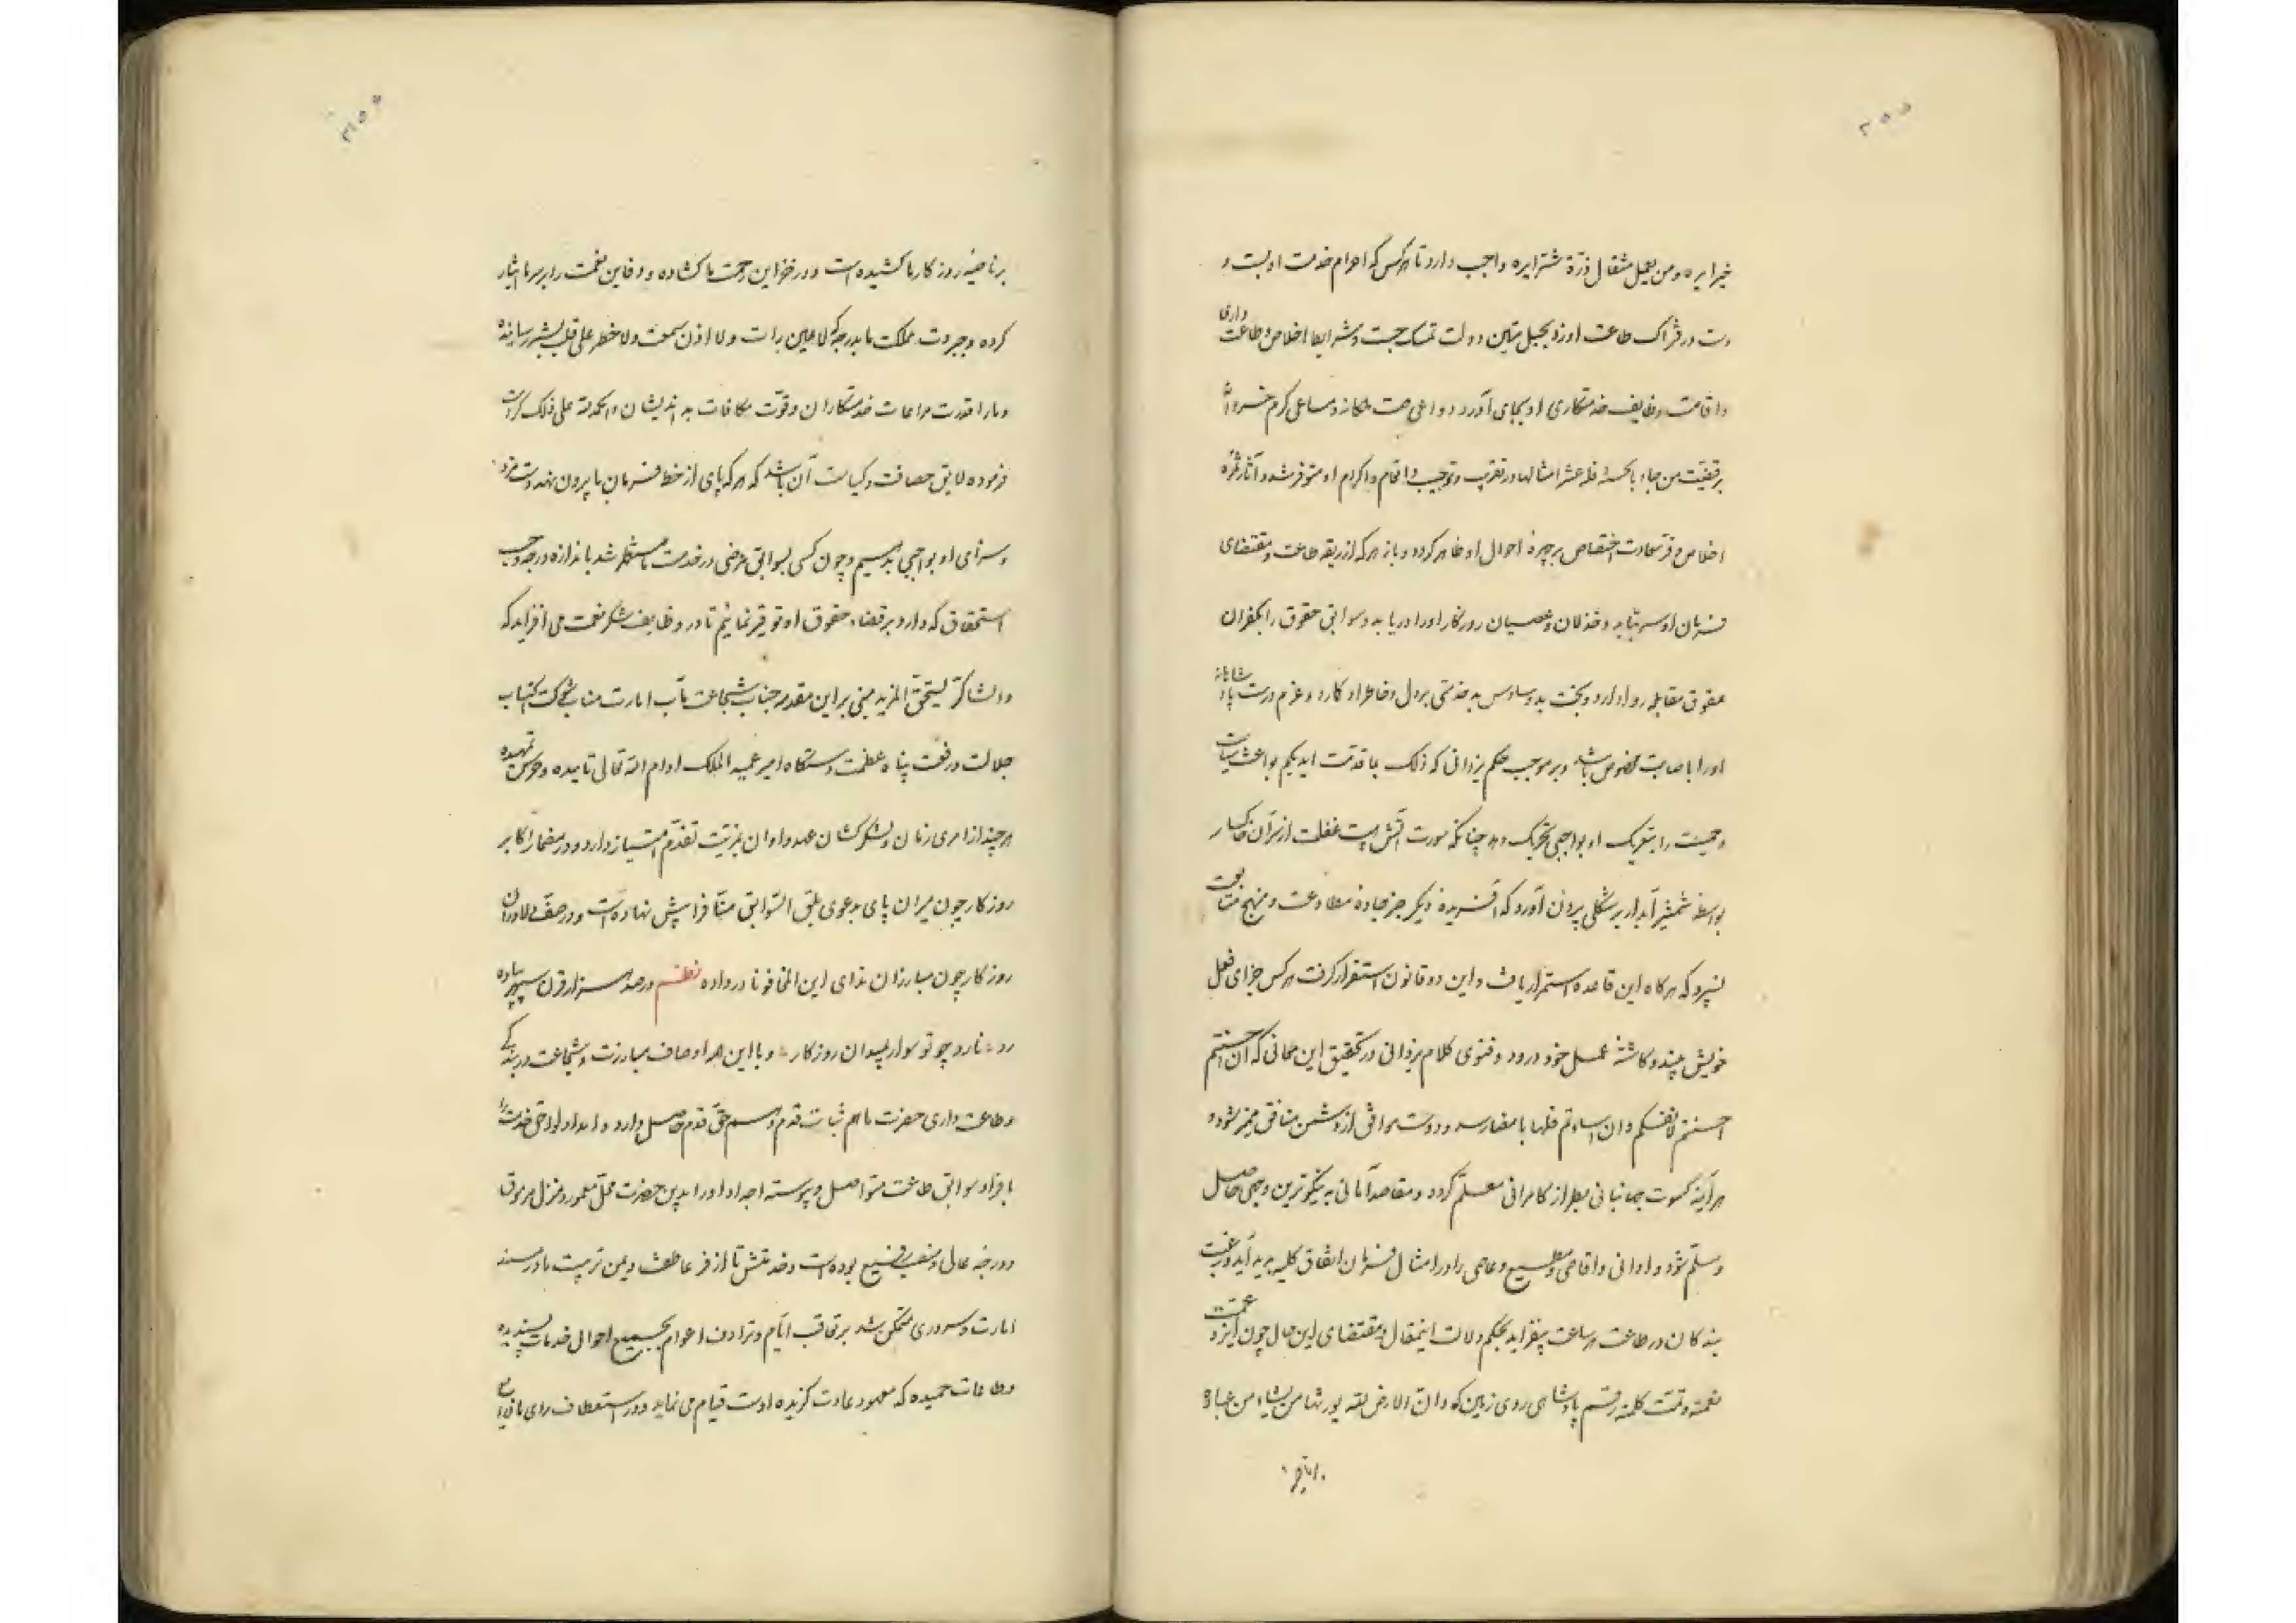 خیرا یره و من یعمل مثقال ذرة شرا یره واجب دارد تا هرکس که احرام خدمت او بست و
دست در فتراک طاعت او زد بحبل متین دولت تمسک جست و شرایط اخلاص و طاعت داری
و اقامت وظایف خدمتکاری او بجای آورد دواعی همت ملکانه و مساعی کرم خسروانه
بر قضیت من جاء بالحسنة فله عشر امثالها در تقریب و ترحیب و اقحام و اکرام او متوفر شد و آثار ثمره
اخلاص و فر سعادت اختصاص بر چهره احوال او ظاهر کرد و باز هر که از ربقه طاعت و مقتضای
فرمان او سر بتابد و خذلان و عصیان روزگار او را دریابد و سوابق حقوق را بکفران
عقوق مقابله روا دارد و بخت بد وساوس بد خدمتی بر دل و خاطر او کارد و عزم درست پادشاهانه
او را باصابت مخصوص باشد و بر موجب حکم یزدانی که ذلک بما قدمت ایدیکم بواعث سیاست
و حمیت را بتعریک او بواجبی تحریک دهد چنانکه سورت آتش هیبت غفلت از سر آن خاکسار
بواسطه شمشیر آبدار بر شکلی بیرون آورد که آفریده دیگر جز جاده مطاوعت و منهج متابعت
نسپرد که هر گاه این قاعده استمرار یافت و این دو قانون استقرار گرفت هر کس جزای فعل
خویش بیند و کاشته عمل خود درود و فتوی کلام یزدانی در تحقیق این معانی که ان احسنتم
احسنتم لانفسکم و ان اساءتم فلها بامضا رسد و دوست موافق از دشمن منافق ممیز شود و
هر آینه کسوت جهانبانی بطراز کامرانی معلم گردد و مقاصد آمانی به نیکوترین وجهی حاصل
و مسلم شود و ادانی و اقاصی و مطیع و عاصی را در امثال فرمان اتفاق کلیه پدید آید و رغبت
بندگان در طاعت هر ساعت بیفزاید بحکم دلالت اینمقال و مقتضای این حال چون ایزد عمت
نعمته و تمت کلمته رقم پادشاهی روی زمین که و ان الارض لله یورثها من یشاء من عباده
بر ناصیه روزگار ما کشیده است و در خزاین رحمت ما گشاده و دفاین نعمت را بر سر ما ایثار
کرده و جبروت مملکت ما بدرجه که لا عین رات و لا اذن سمعت و لا خطر علی قلب بشر رسانیده
و ما را قدرت مراعات خدمتکاران و قوت مکافات بد اندیشان و الحمدلله علی ذلک کرامت
فرموده لایق حصافت و کیاست آن باشد که هر که پای از خط فرمان ما بیرون نهد دست مزد
و سزای او بواجبی بدهیم و چون کسی بسوابق مرضی در خدمت ما مستظهر شد باندازه درجه و حسب
استحقاق که دارد بر قضاء حقوق او توقیر نمائیم تا در وظایف شکر نعمت می افزاید که
و الشاکر یستحق المزید مبنی بر این مقدمه جناب شجاعت مآب امارت مناب شوکت اکتساب
جلالت و رفعت پناه عظمت دستگاه امیر عمید الملک ادام الله تعالی تاییده و حرس تمهیده
هر چند از امرای زمان و لشکرکشان عهد و اوان بمزیت تقدم امتیاز دارد و در مضمار اکابر
روزگار چون میران پای بدعوی یلق السوابق منا فرا پیش نهاده است و در صف دلاوران
روزگار چون مبارزان ندای این المخافونا در داده نظم در صد هزار قرن سپهر پیاده
رو نارد چو تو سوار بمیدان روزگار و با این همه اوصاف مبارزت و شجاعت در بندگی
و طاعت داری حضرت ما هم ثبات قدم و هم حق قدم حاصل دارد و امداد لواحق خدمت را
بافراد سوابق طاعت متواصل و پیوسته اجداد او را بدین حضرت محل معمور و منزل مرموق
و درجه عالی و منصب رفیع بوده است و خدمتش تا از فر عاطفت و یمن تربیت ما در مسند
امارت و سروری متمکن شد بر تعاقب ایام و ترادف اعوام بجمیع احوال خدمات پسندیده
و طاعات حمیده که معهود عادت گزیده اوست قیام می نماید و در استعطاف رای ما